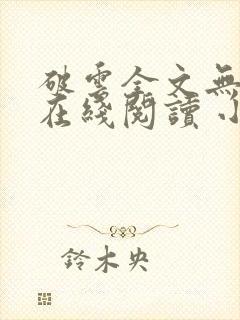 破雲全文無
在綫閱讀 小
鈴木央